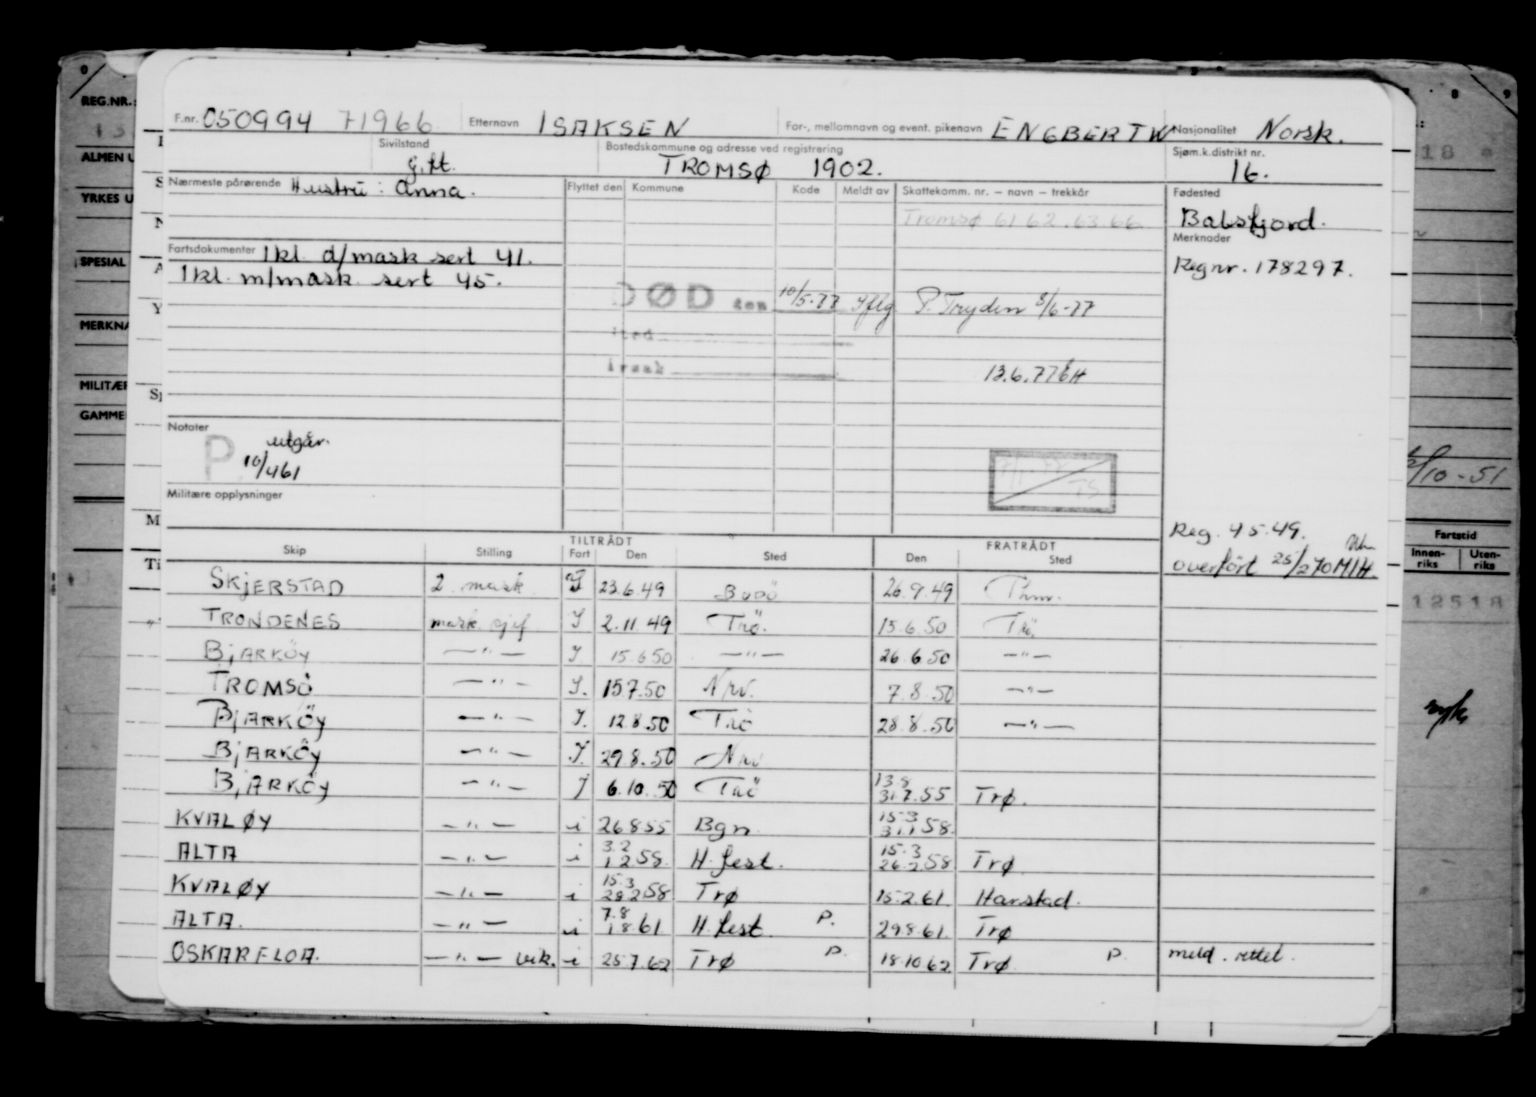 F.nr. 050994 71966 Etternavn ISAKSEN For-, mellomnavn og event. pikenavn ENGBERT W Nasjonalitet Norsk.
Sivilstand g.ft. Bostedskommune og adresse ved registrering TROMSØ 1902. Sjøm.k.distrikt nr. 16.
Nærmeste pårørende Hustru: Anna. Flyttet den Kommune Kode Meldt av Skattekomm. nr. – navn – trekkår Fødested
Tromsø 61 62 .63 66 Balsfjord.
Merknader
Fartsdokumenter 1kl. d/mask sert 41. Regnr. 178297.
1kl. m/mask. sert 45.
DØD den 10/5-77 iflg P. Tryden 8/6-77
sted
årsak
13.6.77
Notater
P utgår.
10/4 61
Militære opplysninger
Reg. 4 5. 49.
overført 25/2 70 M/H.
TILTRÅDT FRATRÅDT
Skip Stilling Fart Den Sted Den Sted
SKJERSTAD 2. mask. I 23.6.49 Bodö 26.9.49 Thm.
TRONDENES mask. sjef I 2.11.49 Trö. 15.6.50 Trö.
BJARKÖY —"— I 15.6.50 —"— 26.6.50 —"—
TROMSÖ —"— I. 15.7.50 Nrv. 7.8.50 —"—
BJARKÖY —"— I. 12.8.50 Trö 28.8.50 —"—
BJARKÖY —"— I. 29.8.50 Nrv
BJARKÖY —"— I 6.10.50 Trö 13.8 31.7.55 Trø.
KVALØY —"— i 26855 Bgn. 15.3 31.1 58.
ALTA —"— i 3.2 1 2 58. H. fest. 15.3 26.2 58 Trø.
KVALØY —"— i 15.3 28 2 58 Trø 15.2.61. Harstad.
ALTA. —"— i 7.8 1 8 61 H. fest. P. 29.8.61. Trø
OSKARFLOA. —"— vik. i 25.7.62 Trø P. 18.10 62 Trø. P. meld. rettet.
REG.NR.:
ALMEN U
YRKES U
SPESIAL
MERKNA
MILITÆR
GAMME
/10 - 51
Fartstid
Innen-riks Uten-riks
12518